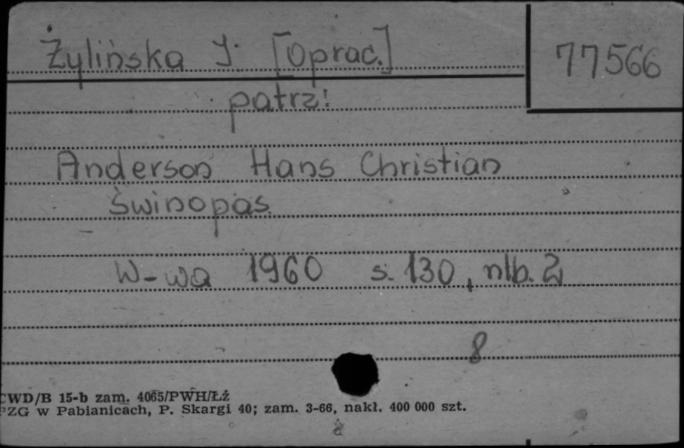 Żylińska J. [Oprac.]
77566
patrz:
Anderson Hans Christian
Świnopas
W-wa 1960 s. 130, nlb. 2
8
CWD/B 15-b zam. 4065/PWH/Łż
PZG w Pabianicach, P. Skargi 40; zam. 3-66, nakł. 400 000 szt.